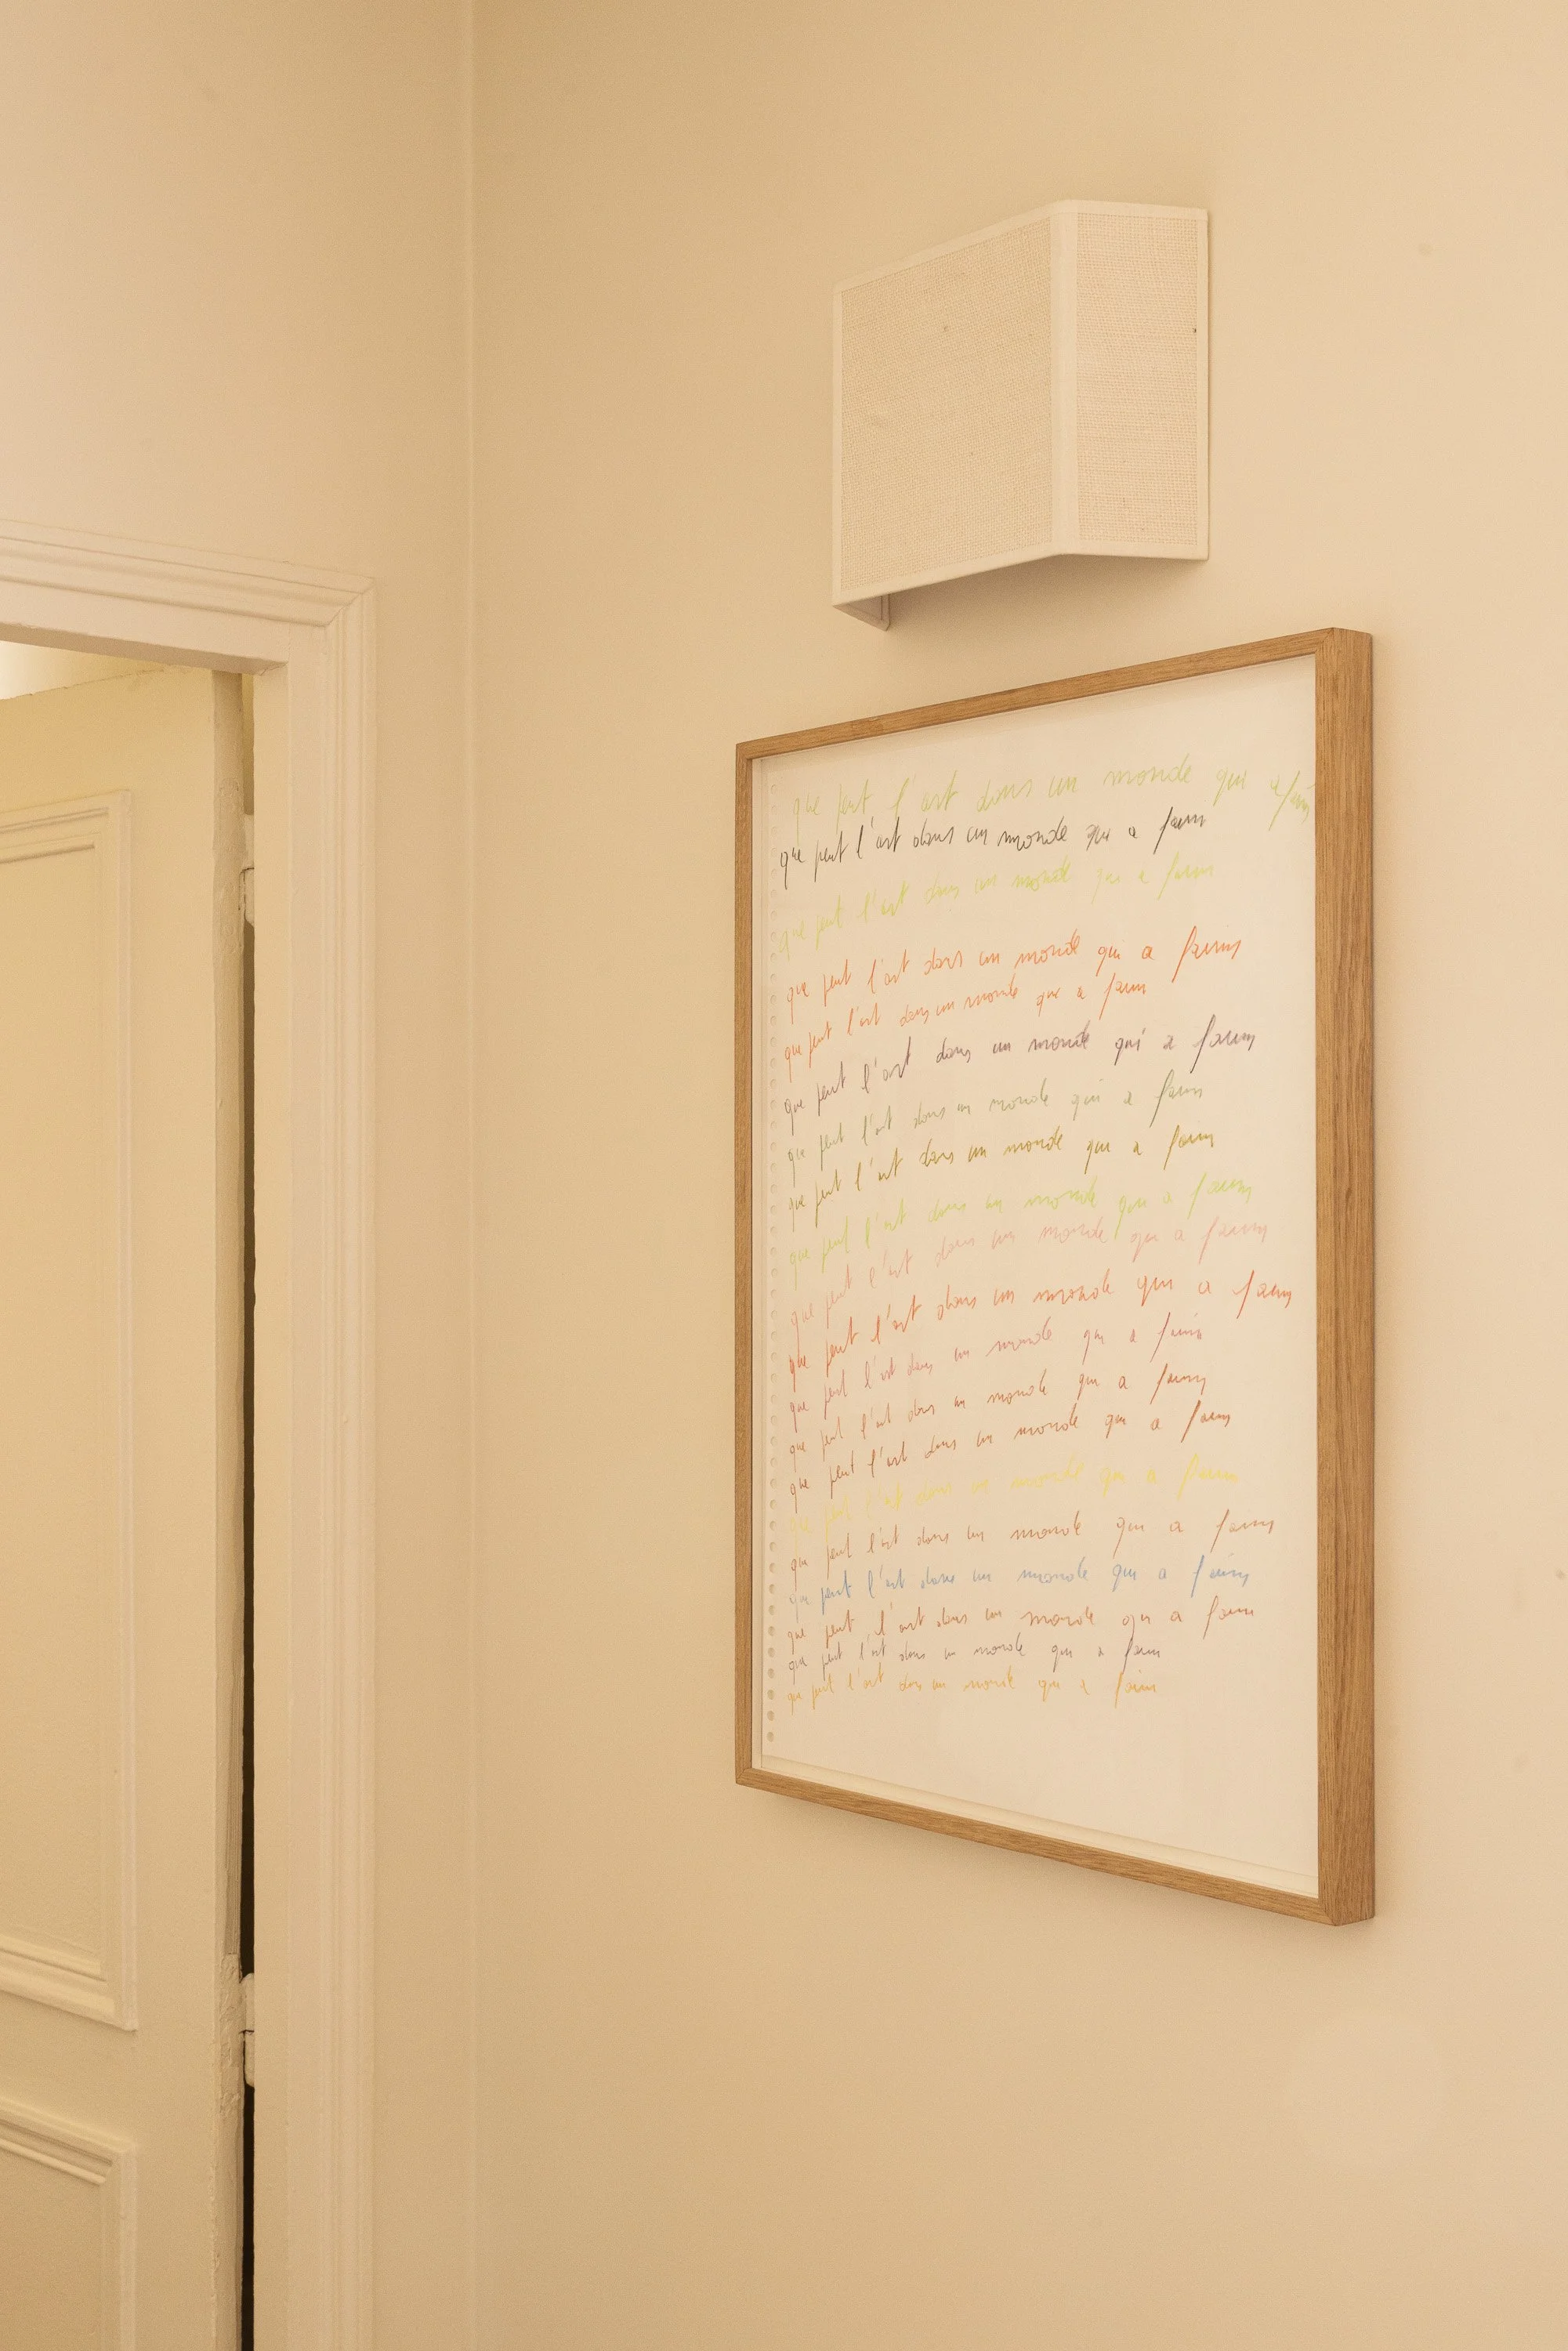 que peut l'art dans un monde qui a faim
que peut l'art dans un monde qui a faim
que peut l'art dans un monde qui a faim
que peut l'art dans un monde qui a faim
que peut l'art dans un monde qui a faim
que peut l'art dans un monde qui a faim
que peut l'art dans un monde qui a faim
que peut l'art dans un monde qui a faim
que peut l'art dans un monde qui a faim
que peut l'art dans un monde qui a faim
que peut l'art dans un monde qui a faim
que peut l'art dans un monde qui a faim
que peut l'art dans un monde qui a faim
que peut l'art dans un monde qui a faim
que peut l'art dans un monde qui a faim
que peut l'art dans un monde qui a faim
que peut l'art dans un monde qui a faim
que peut l'art dans un monde qui a faim
que peut l'art dans un monde qui a faim
que peut l'art dans un monde qui a faim